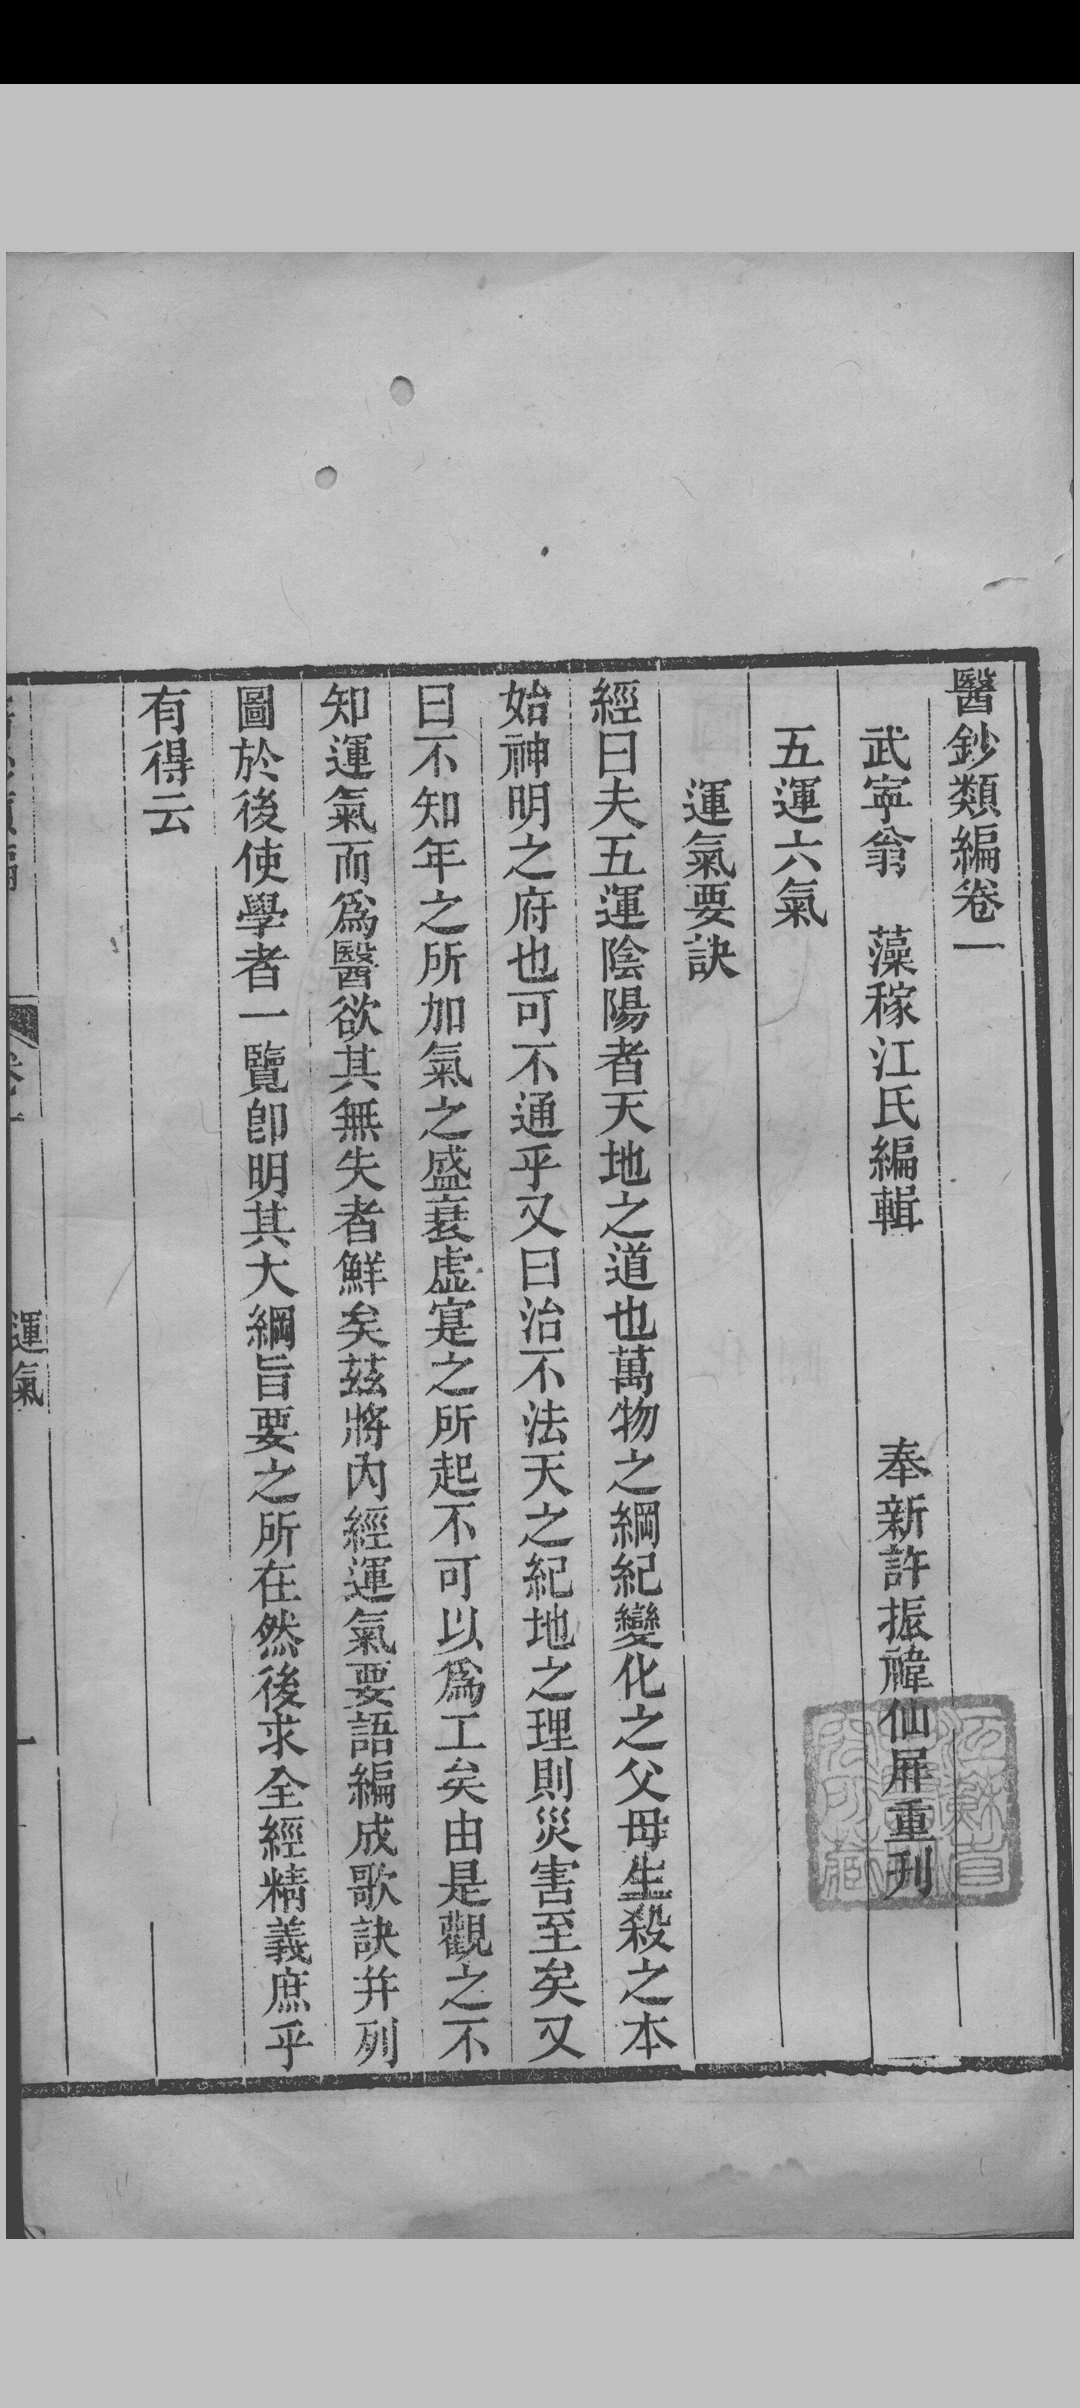 醫鈔類編卷一
武寧翁　藻稼江氏編輯　奉新許振禕仙屏重刋
五運六氣
運氣要訣
經曰夫五運陰陽者天地之道也萬物之綱紀變化之父母生殺之本
始神明之府也可不通乎又曰治不法天之紀地之理則災害至矣又
曰不知年之所加氣之盛衰虛寔之所起不可以爲工矣由是觀之不
知運氣而爲醫欲其無失者鮮矣茲將內經運氣要語編成歌訣并列
圖於後使學者一覽卽明其大綱旨要之所在然後求全經精義庶乎
有得云
運氣